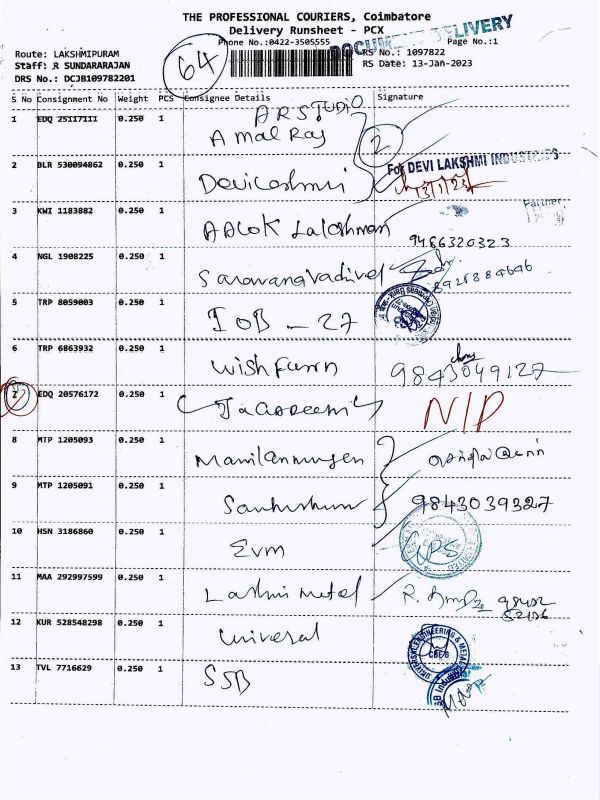 THE PROFESSIONAL COURIERS, Coimbatore
Delivery Runsheet - PCX
Phone No.:0422-3505555
DOCUMENT DELIVERY
Page No.:1
Route: LAKSHMIPURAM
RS No.: 1097822
Staff: R SUNDARARAJAN
RS Date: 13-Jan-2023
DRS No.: DCJB109782201
64
S No Consignment No Weight PCS Consignee Details Signature
1 EDQ 25117111 0.250 1 AR STUDIO
Amal Raj
2
2 BLR 530094862 0.250 1 Devilashmi For DEVI LAKSHMI INDUSTRIES
13/1/23
Partner
3 KWI 1183882 0.250 1 AALOK Lakshman
9466320323
4 NGL 1908225 0.250 1 Saravanavadivel
8926884646
5 TRP 8059003 0.250 1 IOB - 27
6 TRP 6863932 0.250 1 Wish Farm 9843049127
7 EDQ 20576172 0.250 1 N/P
8 MTP 1205093 0.250 1
9 MTP 1205091 0.250 1 9843039327
10 HSN 3186860 0.250 1 EVM
11 MAA 292997599 0.250 1 Lashmi metal R.
12 KUR 528548298 0.250 1 Universal
13 TVL 7716629 0.250 1 SSB